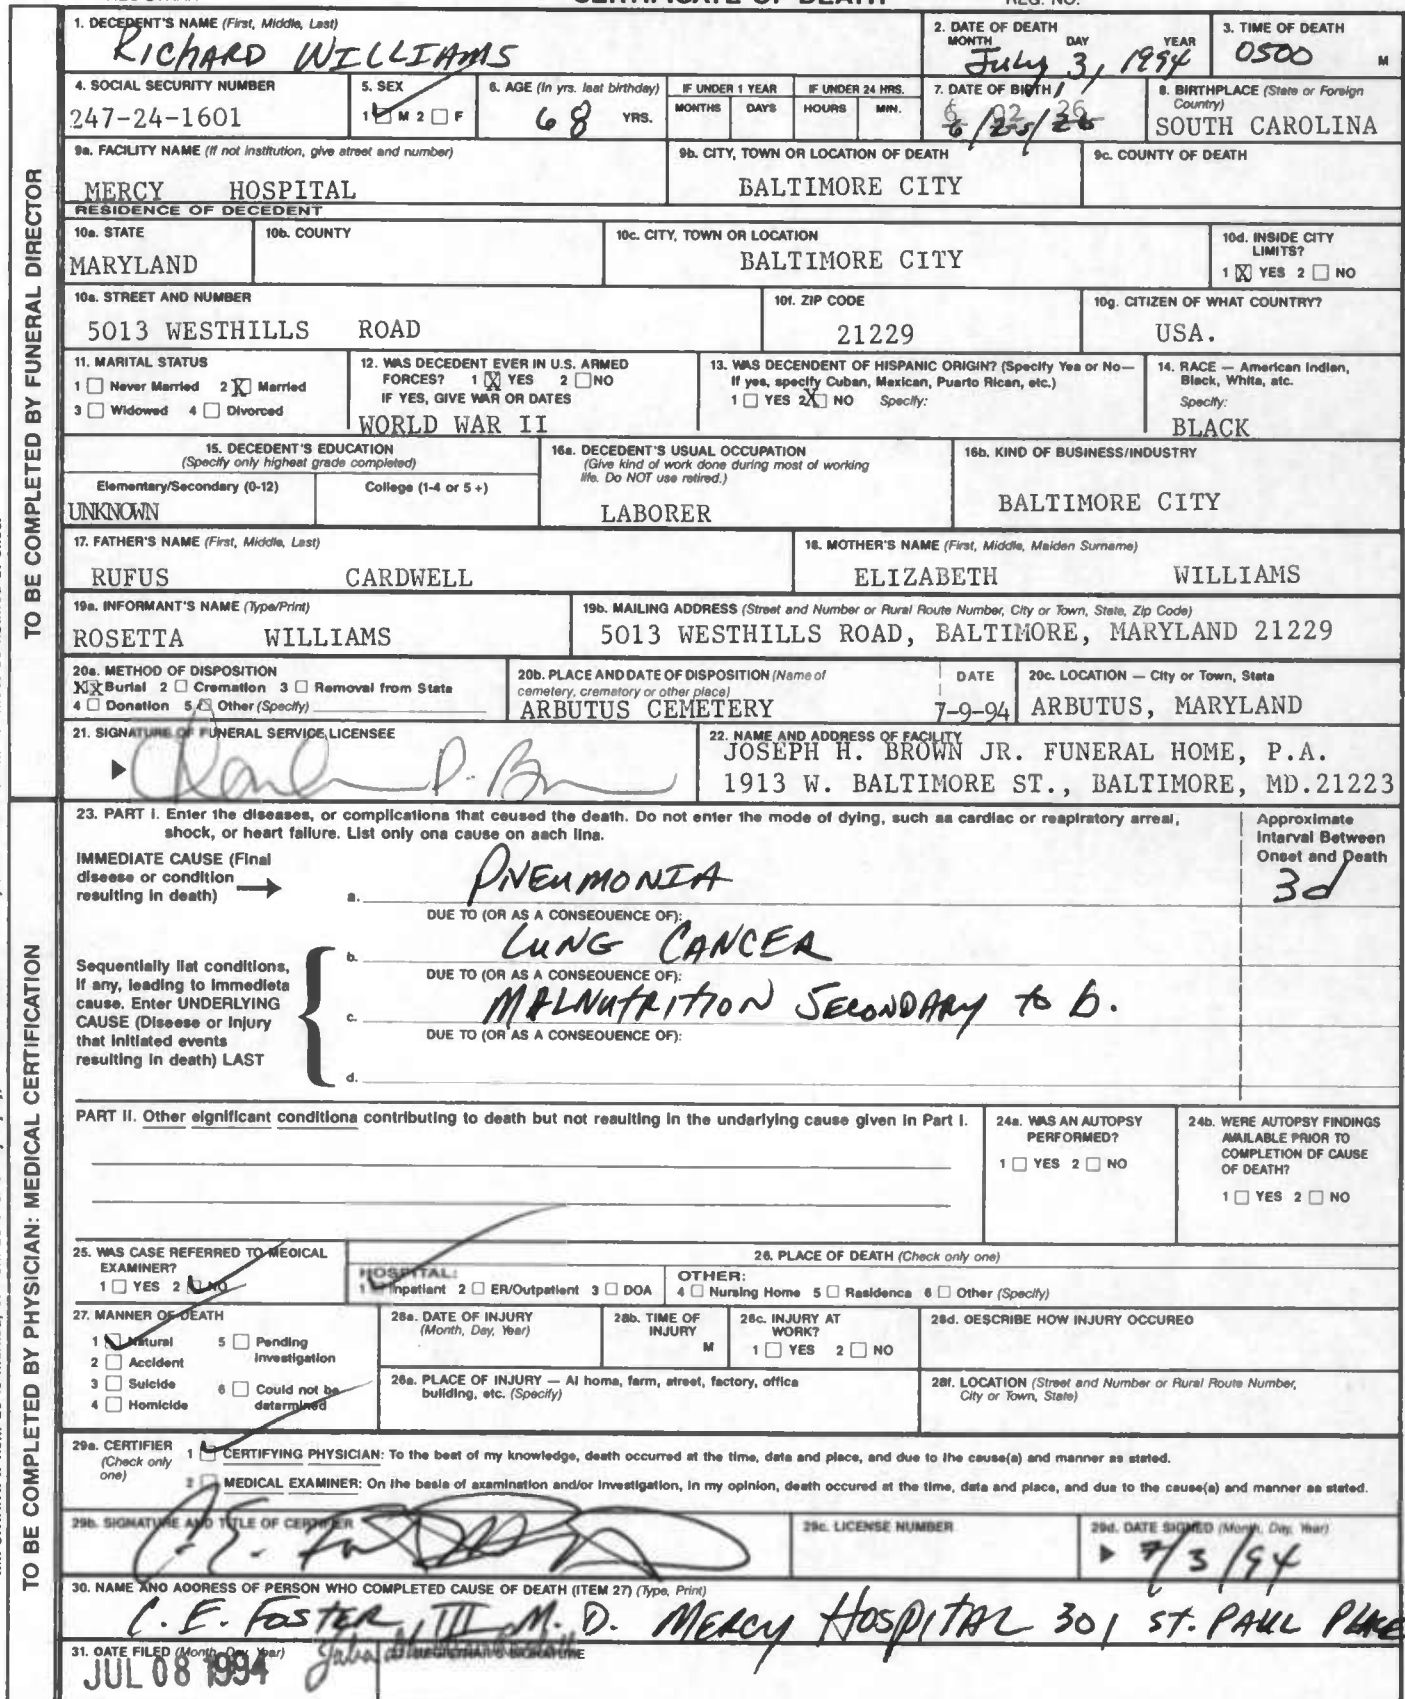 CERTIFICATE OF DEATH
REG. NO.
TO BE COMPLETED BY FUNERAL DIRECTOR
1. DECEDENT'S NAME (First, Middle, Last)
RICHARD WILLIAMS
2. DATE OF DEATH
MONTH DAY YEAR
July 3, 1994
3. TIME OF DEATH
0500 M
4. SOCIAL SECURITY NUMBER
247-24-1601
5. SEX
1 M 2 F
6. AGE (In yrs. last birthday)
68 YRS.
IF UNDER 1 YEAR
MONTHS DAYS
IF UNDER 24 HRS.
HOURS MIN.
7. DATE OF BIRTH
6/25/26
8. BIRTHPLACE (State or Foreign Country)
SOUTH CAROLINA
9a. FACILITY NAME (If not institution, give street and number)
MERCY HOSPITAL
9b. CITY, TOWN OR LOCATION OF DEATH
BALTIMORE CITY
9c. COUNTY OF DEATH
RESIDENCE OF DECEDENT
10a. STATE
MARYLAND
10b. COUNTY
10c. CITY, TOWN OR LOCATION
BALTIMORE CITY
10d. INSIDE CITY LIMITS?
1 X YES 2 NO
10e. STREET AND NUMBER
5013 WESTHILLS ROAD
10f. ZIP CODE
21229
10g. CITIZEN OF WHAT COUNTRY?
USA.
11. MARITAL STATUS
1 Never Married 2 X Married
3 Widowed 4 Divorced
12. WAS DECEDENT EVER IN U.S. ARMED
FORCES? 1 X YES 2 NO
IF YES, GIVE WAR OR DATES
WORLD WAR II
13. WAS DECENDENT OF HISPANIC ORIGIN? (Specify Yes or No—
If yes, specify Cuban, Mexican, Puerto Rican, etc.)
1 YES 2 X NO Specify:
14. RACE — American Indian,
Black, White, etc.
Specify:
BLACK
15. DECEDENT'S EDUCATION
(Specify only highest grade completed)
Elementary/Secondary (0-12)
College (1-4 or 5+)
UNKNOWN
16a. DECEDENT'S USUAL OCCUPATION
(Give kind of work done during most of working
life. Do NOT use retired.)
LABORER
16b. KIND OF BUSINESS/INDUSTRY
BALTIMORE CITY
17. FATHER'S NAME (First, Middle, Last)
RUFUS CARDWELL
18. MOTHER'S NAME (First, Middle, Maiden Surname)
ELIZABETH WILLIAMS
19a. INFORMANT'S NAME (Type/Print)
ROSETTA WILLIAMS
19b. MAILING ADDRESS (Street and Number or Rural Route Number, City or Town, State, Zip Code)
5013 WESTHILLS ROAD, BALTIMORE, MARYLAND 21229
20a. METHOD OF DISPOSITION
XX Burial 2 Cremation 3 Removal from State
4 Donation 5 Other (Specify)
20b. PLACE AND DATE OF DISPOSITION (Name of
cemetery, crematory or other place)
ARBUTUS CEMETERY
DATE
7-9-94
20c. LOCATION — City or Town, State
ARBUTUS, MARYLAND
21. SIGNATURE OF FUNERAL SERVICE LICENSEE
22. NAME AND ADDRESS OF FACILITY
JOSEPH H. BROWN JR. FUNERAL HOME, P.A.
1913 W. BALTIMORE ST., BALTIMORE, MD.21223
TO BE COMPLETED BY PHYSICIAN: MEDICAL CERTIFICATION
23. PART I. Enter the diseases, or complications that caused the death. Do not enter the mode of dying, such as cardiac or respiratory arrest,
shock, or heart failure. List only one cause on each line.
Approximate
Interval Between
Onset and Death
IMMEDIATE CAUSE (Final
disease or condition
resulting in death)
a. PNEUMONIA
3d
DUE TO (OR AS A CONSEQUENCE OF):
b. LUNG CANCER
DUE TO (OR AS A CONSEQUENCE OF):
c. MALNUTRITION SECONDARY to b.
DUE TO (OR AS A CONSEQUENCE OF):
d.
Sequentially list conditions,
if any, leading to immediate
cause. Enter UNDERLYING
CAUSE (Disease or injury
that initiated events
resulting in death) LAST
PART II. Other significant conditions contributing to death but not resulting in the underlying cause given in Part I.
24a. WAS AN AUTOPSY
PERFORMED?
1 YES 2 NO
24b. WERE AUTOPSY FINDINGS
AVAILABLE PRIOR TO
COMPLETION OF CAUSE
OF DEATH?
1 YES 2 NO
25. WAS CASE REFERRED TO MEDICAL
EXAMINER?
1 YES 2 NO
26. PLACE OF DEATH (Check only one)
HOSPITAL:
1 Inpatient 2 ER/Outpatient 3 DOA
OTHER:
4 Nursing Home 5 Residence 6 Other (Specify)
27. MANNER OF DEATH
1 Natural 5 Pending
2 Accident Investigation
3 Suicide 6 Could not be
4 Homicide determined
28a. DATE OF INJURY
(Month, Day, Year)
28b. TIME OF
INJURY
M
28c. INJURY AT
WORK?
1 YES 2 NO
28d. DESCRIBE HOW INJURY OCCURED
28e. PLACE OF INJURY — At home, farm, street, factory, office
building, etc. (Specify)
28f. LOCATION (Street and Number or Rural Route Number,
City or Town, State)
29a. CERTIFIER
(Check only
one)
1 CERTIFYING PHYSICIAN: To the best of my knowledge, death occurred at the time, date and place, and due to the cause(s) and manner as stated.
2 MEDICAL EXAMINER: On the basis of examination and/or investigation, in my opinion, death occured at the time, date and place, and due to the cause(s) and manner as stated.
29b. SIGNATURE AND TITLE OF CERTIFIER
29c. LICENSE NUMBER
29d. DATE SIGNED (Month, Day, Year)
7/3/94
30. NAME AND ADDRESS OF PERSON WHO COMPLETED CAUSE OF DEATH (ITEM 27) (Type, Print)
C. E. FOSTER III M. D. MERCY HOSPITAL 301 ST. PAUL PLACE
31. DATE FILED (Month, Day, Year)
JUL 08 1994